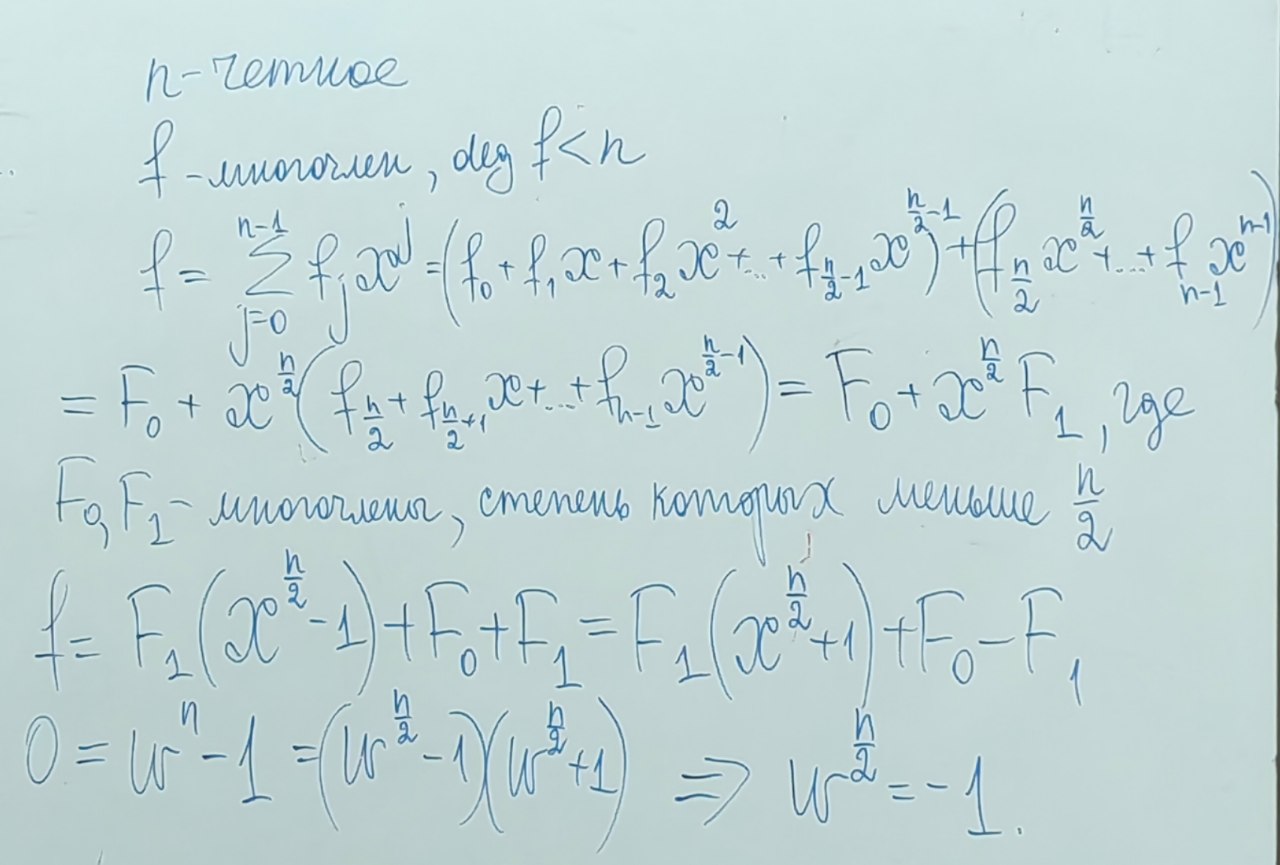 n-четное
f-многочлен, deg f<n
f = \sum_{j=0}^{n-1} f_j x^j = (f_0 + f_1 x + f_2 x^2 + ... + f_{\frac{n}{2}-1} x^{\frac{n}{2}-1}) + (f_{\frac{n}{2}} x^{\frac{n}{2}} + ... + f_{n-1} x^{n-1})
= F_0 + x^{\frac{n}{2}} (f_{\frac{n}{2}} + f_{\frac{n}{2}+1} x + ... + f_{n-1} x^{\frac{n}{2}-1}) = F_0 + x^{\frac{n}{2}} F_1, где
F_0, F_1 - многочлены, степень которых меньше \frac{n}{2}
f = F_1 (x^{\frac{n}{2}} - 1) + F_0 + F_1 = F_1 (x^{\frac{n}{2}} + 1) + F_0 - F_1
0 = w^n - 1 = (w^{\frac{n}{2}} - 1)(w^{\frac{n}{2}} + 1) ⇒ w^{\frac{n}{2}} = -1.